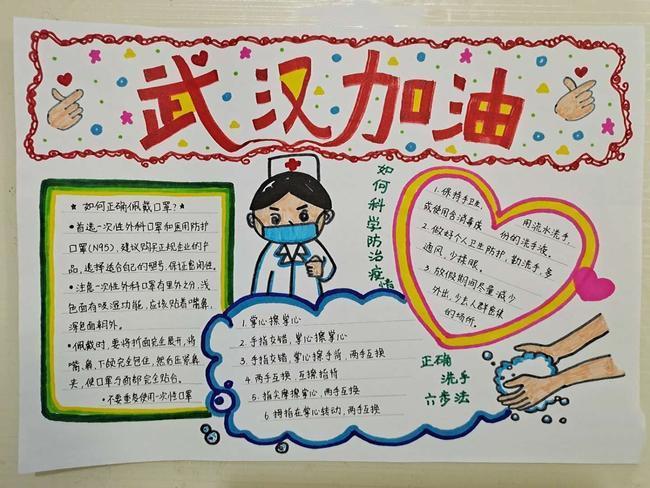 武汉加油
★ 如何正确佩戴口罩? ★
• 首选一次性外科口罩和医用防护
口罩(N95),建议购买正规企业的产
品,选择适合自己的型号,保证密闭性。
• 注意一次性外科口罩有里外之分,浅
色面有吸湿功能,应该贴着嘴鼻,
深色面朝外。
• 佩戴时,要将折面完全展开,将
嘴、鼻、下颌完全包住,然后压紧鼻
夹,使口罩与面部完全贴合。
• 不要重复使用一次性口罩
如何科学防治疫情
1. 保持手卫生,用流水洗手,
或使用含消毒成份的洗手液。
2. 做好个人卫生防护,勤洗手,多
通风,少揉眼。
3. 放假期间尽量减少
外出,少去人群密集
的场所。
1. 掌心擦掌心
2. 手指交错,掌心擦掌心
3. 手指交错,掌心擦手背,两手互换
4. 两手互换,互擦指背
5. 指尖摩擦掌心,两手互换
6. 拇指在掌心转动,两手互换
正确
洗手
六步法